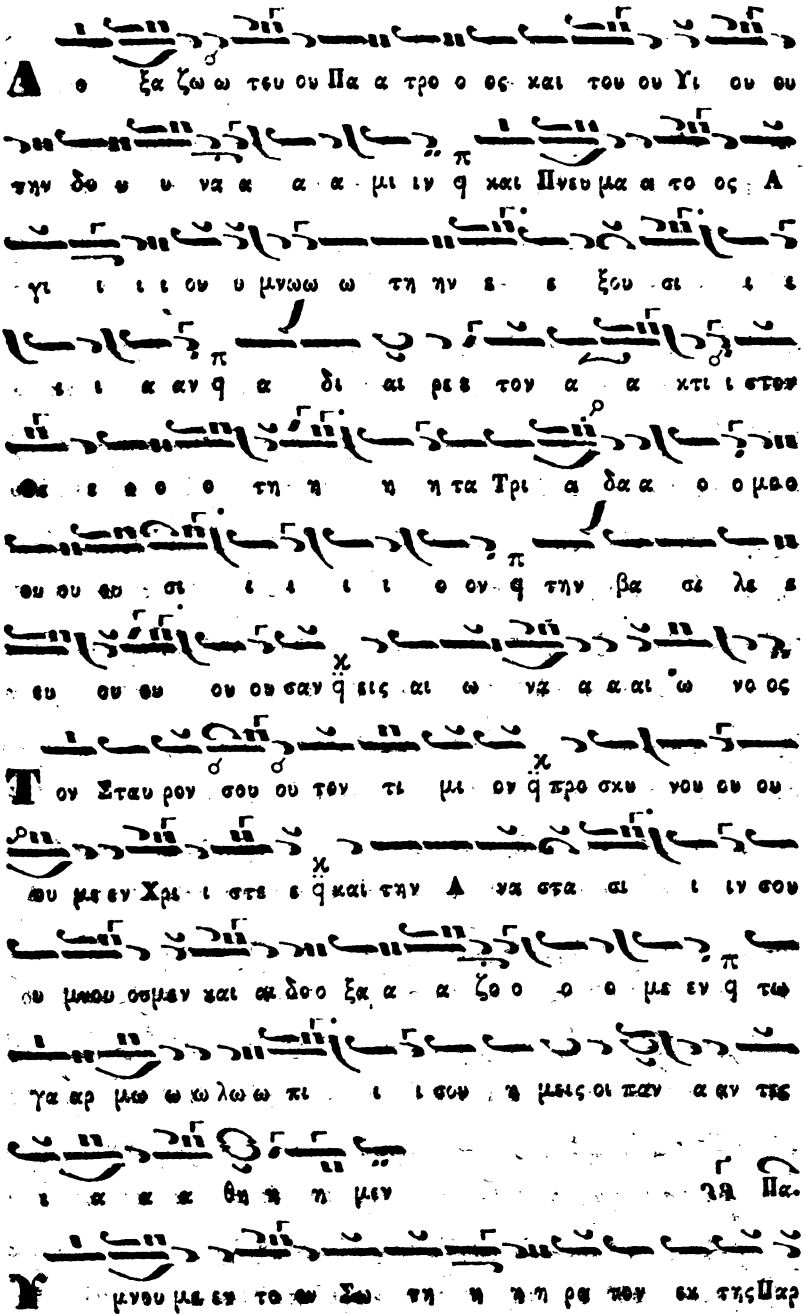 Δ ο ξα ζω ω τευ ου Πα α τρο ο ος και του ου Υι ου ου
την δυ υ υ να α α α μι ιν q και Πνευ μα α το ος Α
γι ι ι ι ου υ μνωω ω τη ην ε ε ξου σι ι ε
ε ι α αν q α δι αι ρε ε τον α α κτι ι στον
Θε ε ο ο ο τη η η η τα Τρι α δα α ο ο μο ο
ου ου ου σι ι ι ι ι ο ον q την βα σι λε ε
ευ ου ου ου ου σαν q εις αι ω να α α αι ω νο ος
Τ ον Σταυ ρον σου ου τον τι μι ον q προ σκυ νου ου ου
ου με εν Χρι ι στε ε q και την Α να στα σι ι ιν σου
ου μνου ουμεν και αι δο ο ξα α α ζο ο ο ο με εν q τω
γα αρ μω ω ω λω ω πι ι ι σου η μεις οι παν α αν τες
ι α α α θη η η μεν λα Πα.
Υ μνου με εν το ον Σω τη η η η ρα τον εκ της Παρ